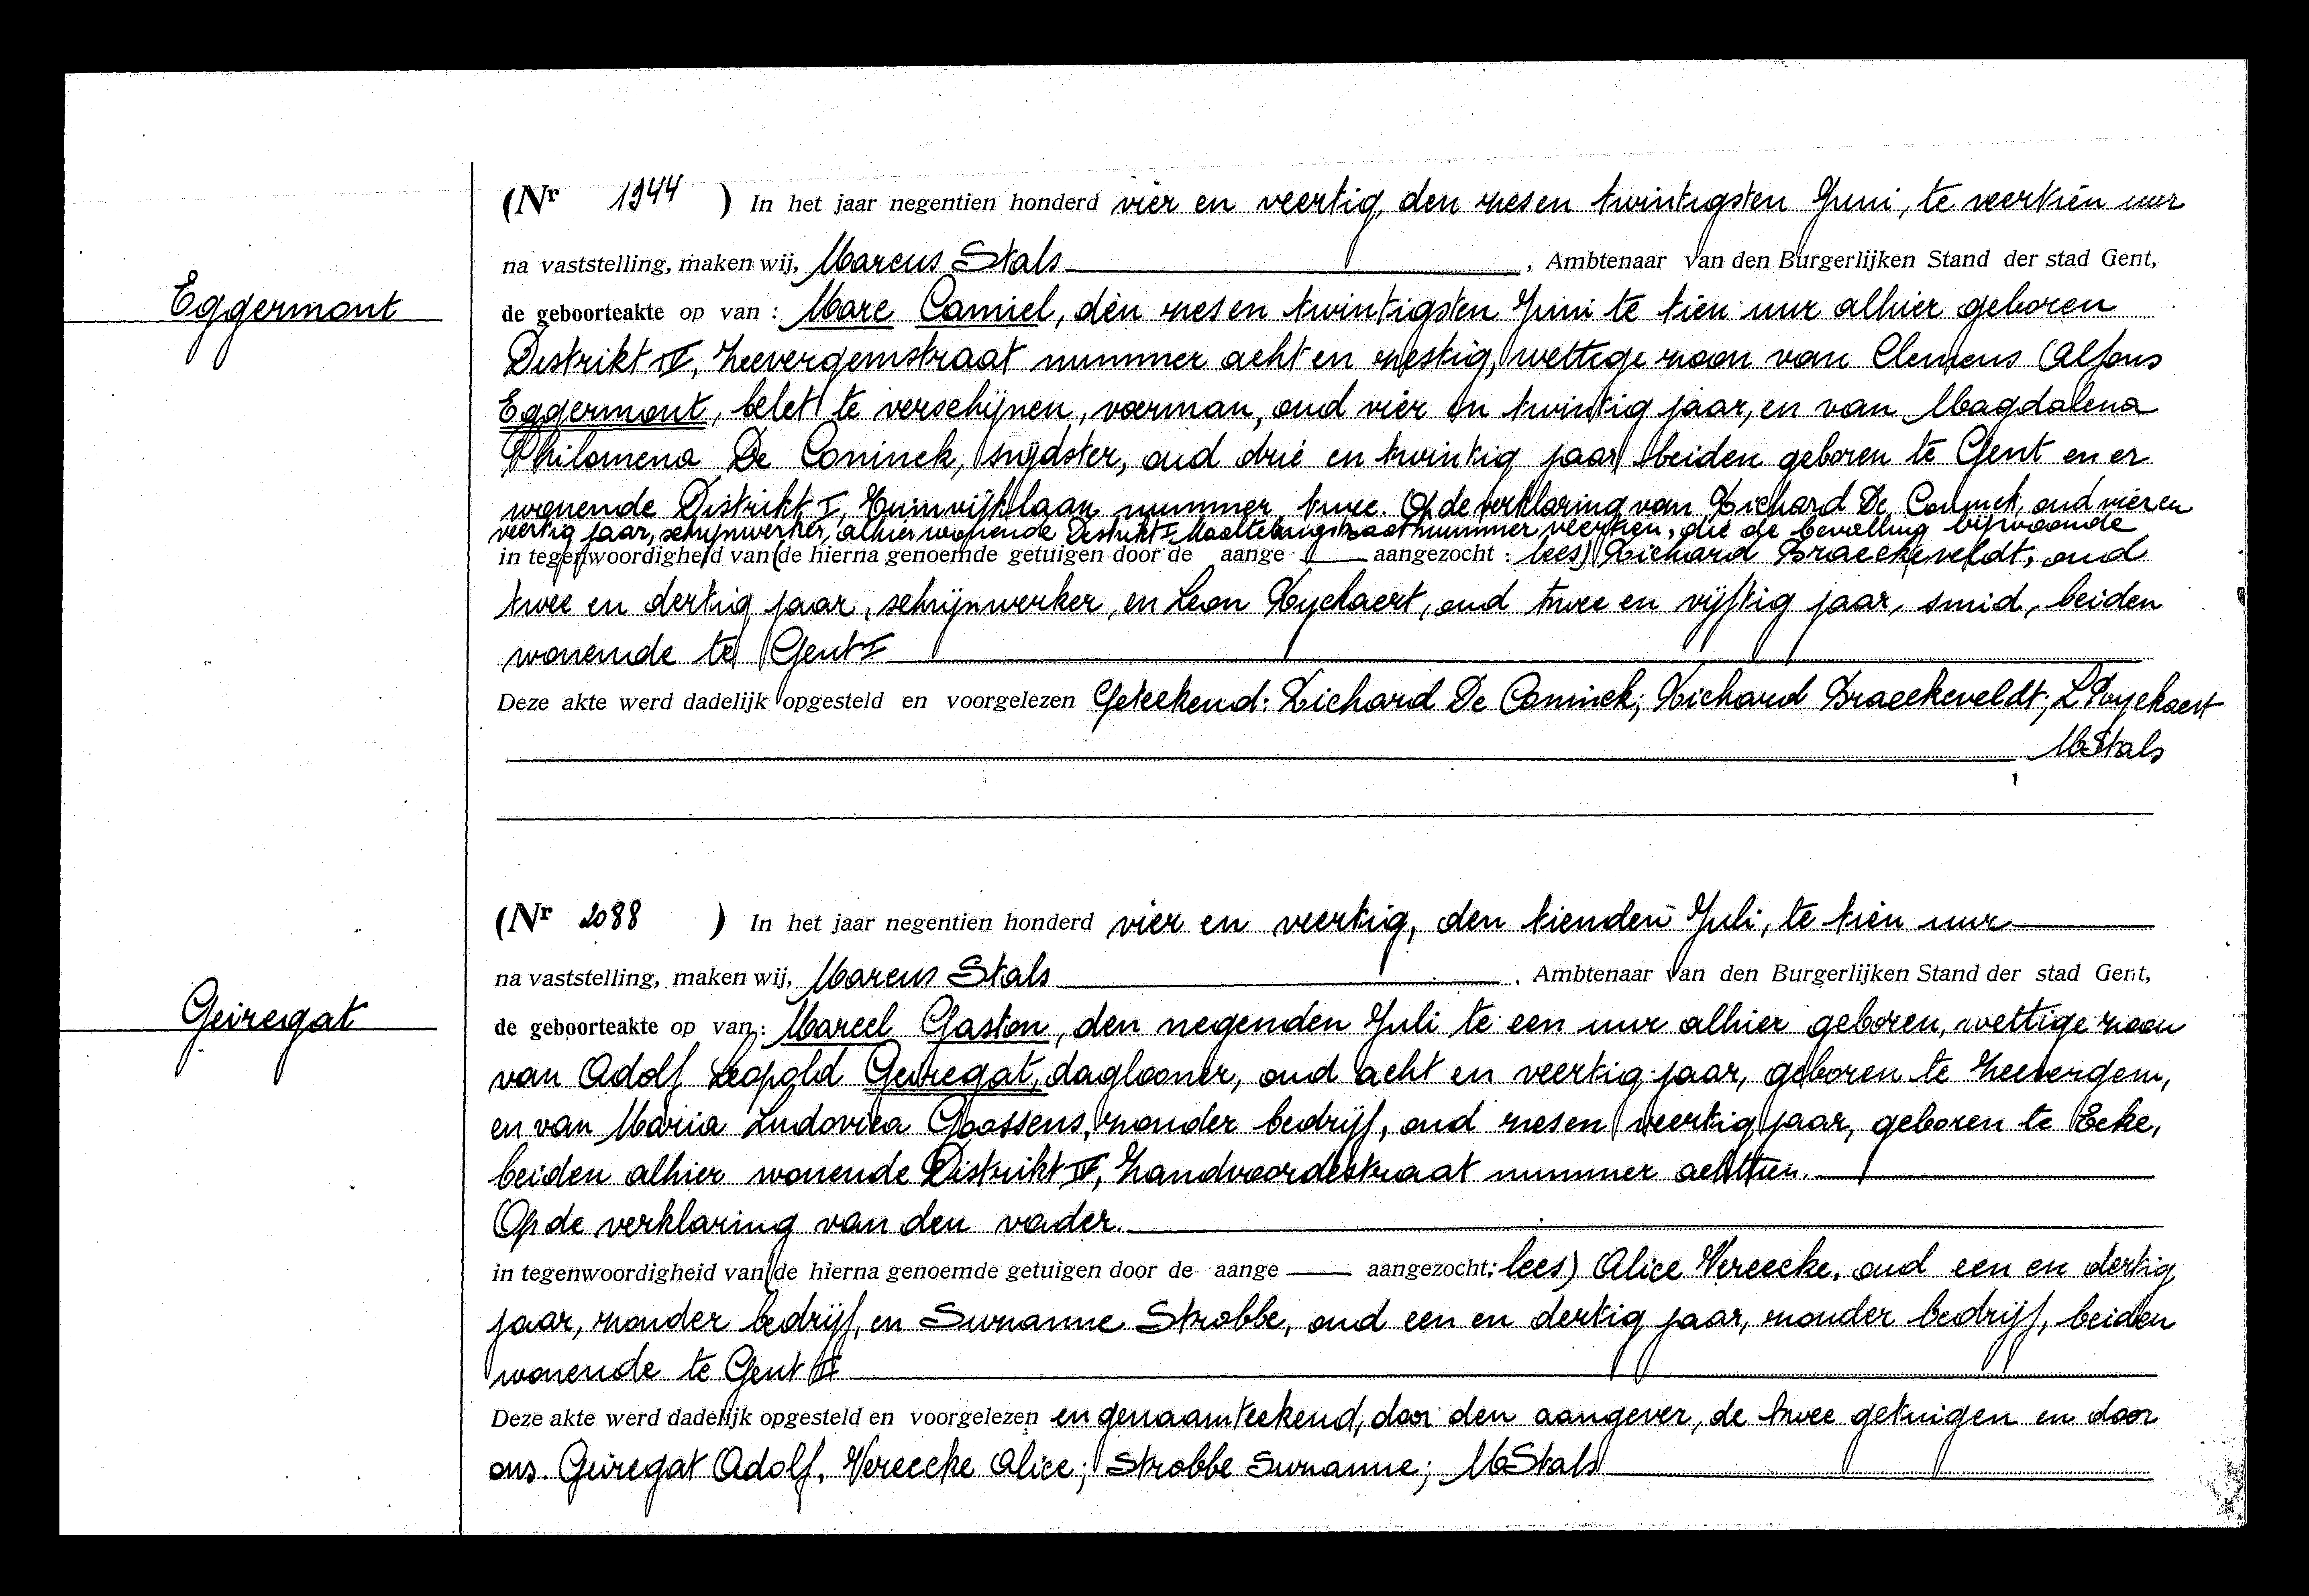 (Nr 1944 ) In het jaar negentien honderd vier en veertig, den zesen twintigsten Juni, te veertien uur
na vaststelling, maken wij, Marcus Stals , Ambtenaar van den Burgerlijken Stand der stad Gent,
Eggermont
de geboorteakte op van : Marc Camiel, den zesen twintigsten Juni te tien uur alhier geboren
Distrikt IV, Zwevergemstraat nummer acht en zestig, wettige zoon van Clemens Alfons
Eggermont, belet te verschijnen, voerman, oud vier en twintig jaar, en van Magdalena
Philomena De Coninck, snijdster, oud drie en twintig jaar, beiden geboren te Gent en er
wonende Distrikt I, nummer twee. Op de verklaring van Richard De Coninck, oud vier en
veertig jaar, schrijnwerker, alhier wonende Distrikt I Maaltebrugstraat nummer veertien, die de bevalling bijwoonde
in tegenwoordigheid van (de hierna genoemde getuigen door de aange aangezocht : lees) Richard Braeckeveldt, oud
twee en dertig jaar, schrijnwerker, en Leon Ryckaert, oud twee en vijftig jaar, smid, beiden
wonende te Gent I
Deze akte werd dadelijk opgesteld en voorgelezen Geteekend: Richard De Coninck; Richard Braeckeveldt; L Ryckaert
MStals
(Nr 2088 ) In het jaar negentien honderd vier en veertig, den tienden Juli, te tien uur
na vaststelling, maken wij, Marcus Stals , Ambtenaar van den Burgerlijken Stand der stad Gent,
Geiregat
de geboorteakte op van: Marcel Gaston, den negenden Juli te een uur alhier geboren, wettige zoon
van Adolf Leopold Geiregat, daglooner, oud acht en veertig jaar, geboren te Zeevergem,
en van Maria Ludovica Goossens, zonder bedrijf, oud zesen veertig jaar, geboren te Eeke,
beiden alhier wonende Distrikt IV, Zandvoordestraat nummer achttien.
Op de verklaring van den vader.
in tegenwoordigheid van (de hierna genoemde getuigen door de aange aangezocht: lees) Alice Vereecke, oud een en dertig
jaar, zonder bedrijf, en Suzanne Strobbe, oud een en dertig jaar, zonder bedrijf, beiden
wonende te Gent II
Deze akte werd dadelijk opgesteld en voorgelezen en genaamteekend, door den aangever, de twee getuigen en door
ons. Geiregat Adolf, Vereecke Alice; Strobbe Suzanne; MStals